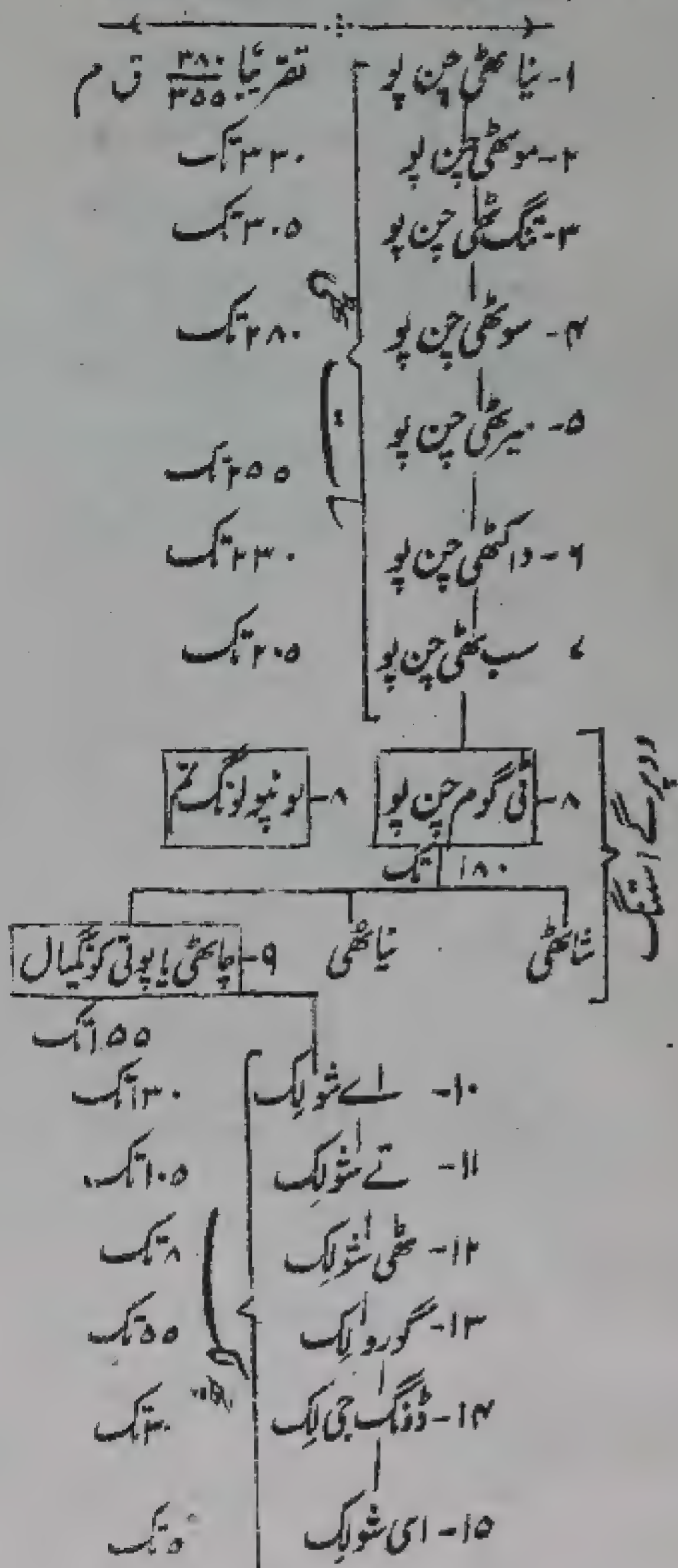 ۱- نیا ٹھی چن پو تقریباً ۳۸۰/۳۵۵ ق م
۲- موٹھی چن پو ۳۳۰ تک
۳- تنگ ٹھی چن پو ۳۰۵ تک
۴- سوٹھی چن پو ۲۸۰ تک
۵- میرٹھی چن پو ۲۵۵ تک
۶- داکٹھی چن پو ۲۳۰ تک
۷ سب ٹھی چن پو ۲۰۵ تک
۸- ٹی گوم چن پو ۸- لونپو لونگ تم
۱۸۰ تک
شاٹھی نیاٹھی ۹- چاٹھی یا پوتی کونگیال
۱۵۵ تک
۱۰- اے شولِک ۱۳۰ تک
۱۱- تے شولِک ۱۰۵ تک
۱۲- ٹھی شولِک ۸ تک
۱۳- گورو لِک ۵۵ تک
۱۴- ڈونگ جی لِک ۳۰ تک
۱۵- اسی شولِک ۵ تک